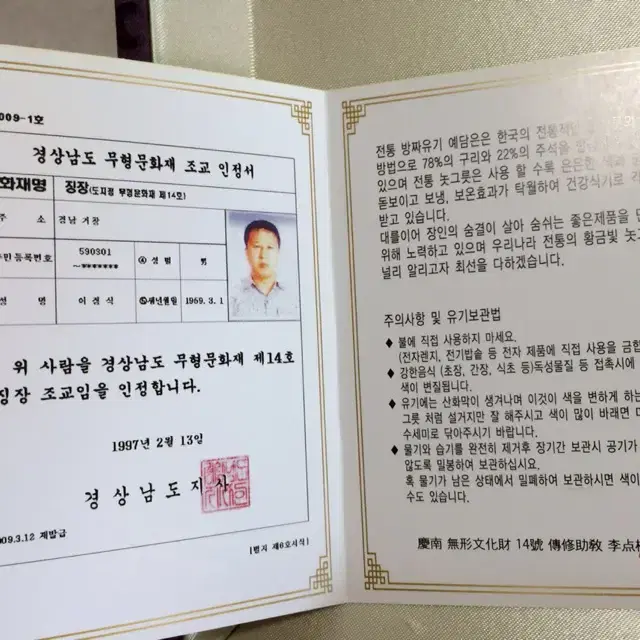 009-1호
경상남도 무형문화재 조교 인정서
화재명 징장(도지정 무형문화재 제14호)
주 소 경남 거창
민등록번호 590301 ~******* ④ 성 별 男
성 명 이 점 식 ⑤생년월일 1969. 3. 1
위 사람을 경상남도 무형문화재 제14호
징장 조교임을 인정합니다.
1997년 2월 13일
경 상 남 도 지 사
009.3.12 재발급
[별지 제6호서식]
전통 방짜유기 예담은은 한국의 전통적인
방법으로 78%의 구리와 22%의 주석을
있으며 전통 놋그릇은 사용 할 수록 은은한
돋보이고 보냉, 보온효과가 탁월하여 건강식기로
받고 있습니다.
대를이어 장인의 숨결이 살아 숨쉬는 좋은제품을
위해 노력하고 있으며 우리나라 전통의 황금빛
널리 알리고자 최선을 다하겠습니다.
주의사항 및 유기보관법
◆ 불에 직접 사용하지 마세요.
(전자렌지, 전기밥솥 등 전자 제품에 직접 사용을 금합
◆ 강한음식 (초장, 간장, 식초 등)독성물질 등 접촉시에
색이 변질됩니다.
◆ 유기에는 산화막이 생겨나며 이것이 색을 변하게 하는
그릇 처럼 설거지만 잘 해주시고 색이 많이 바래면
수세미로 닦아주시기 바랍니다.
◆ 물기와 습기를 완전히 제거후 장기간 보관시 공기가
않도록 밀봉하여 보관하십시요.
혹 물기가 남은 상태에서 밀폐하여 보관하시면 색이
수도 있습니다.
慶南 無形文化財 14號 傳修助敎 李点植